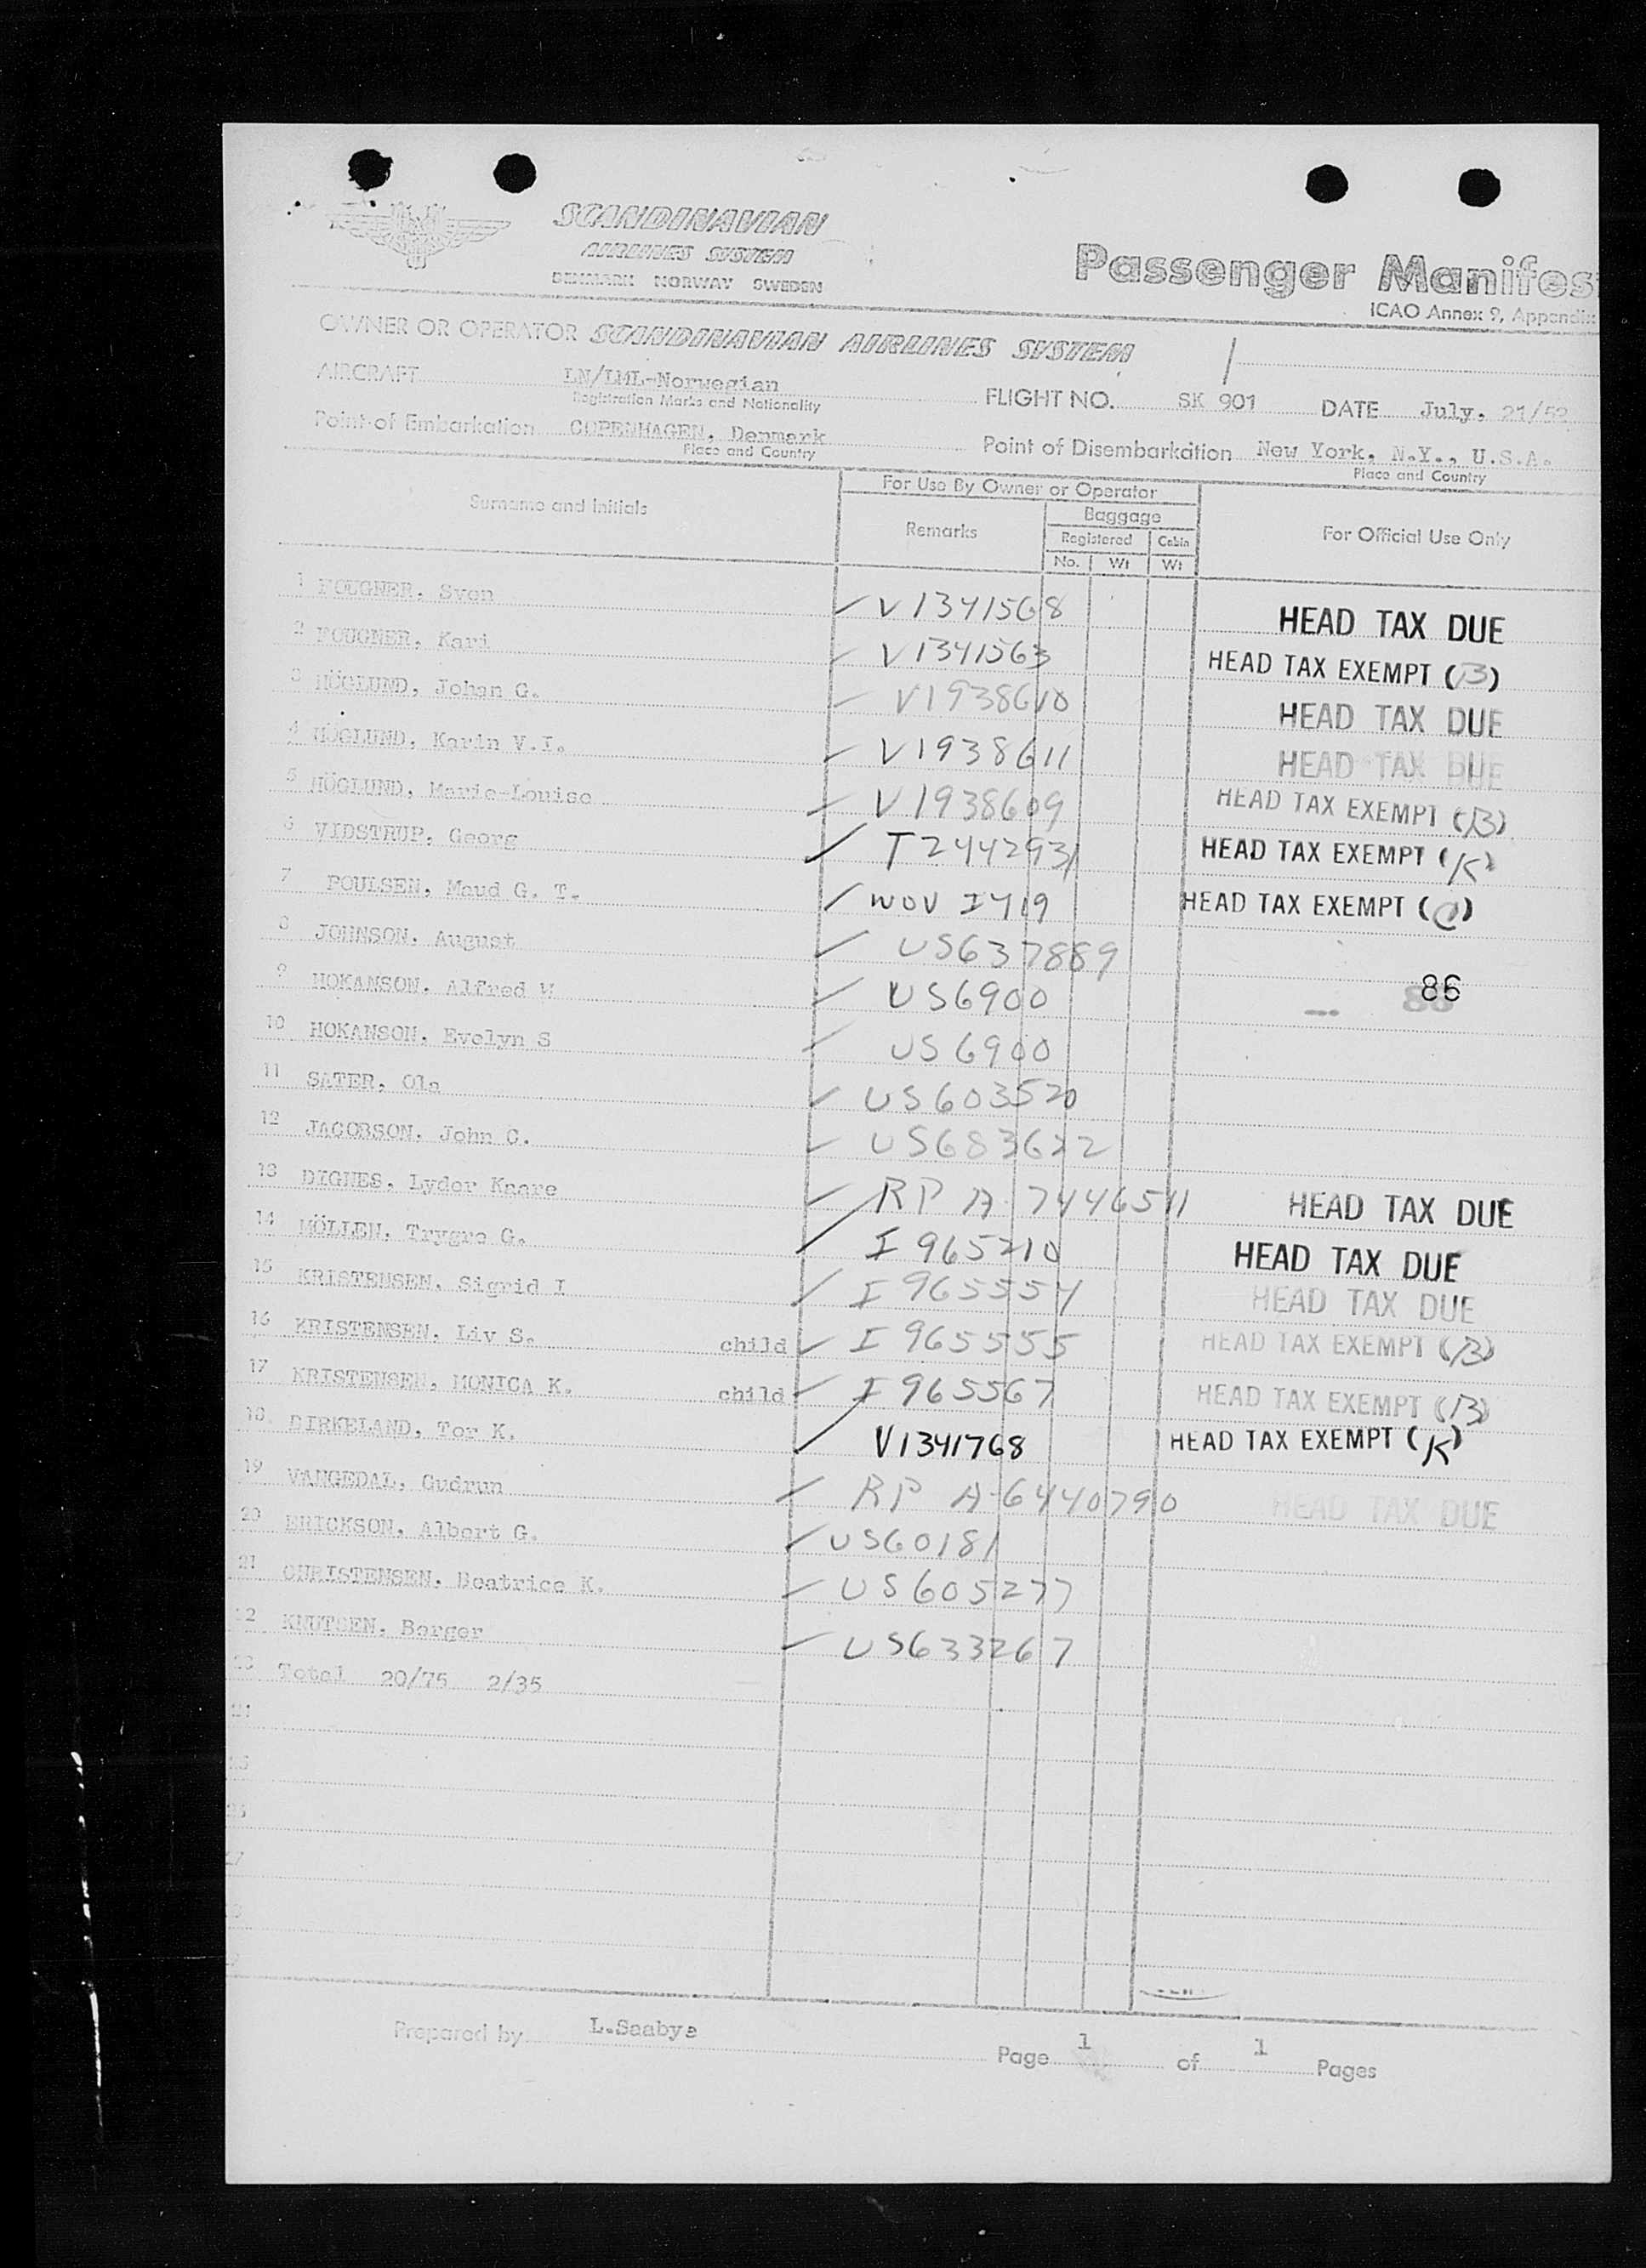 SCANDINAVIAN
AIRLINES SYSTEM
DENMARK NORWAY SWEDEN
Passenger Manifes
ICAO Annex 9, Appendix
OWNER OR OPERATOR SCANDINAVIAN AIRLINES SYSTEM
AIRCRAFT LN/LML-Norwegian FLIGHT NO. SK 901 DATE July, 21/52
Registration Marks and Nationality
Point of Embarkation COPENHAGEN, Denmark Point of Disembarkation New York, N.Y., U.S.A.
Place and Country Place and Country
Surname and Initials For Use By Owner or Operator For Official Use Only
Remarks Baggage
Registered Cabin
No. Wt Wt
1 FOUGNER, Sven V1341568 HEAD TAX DUE
2 FOUGNER, Kari V1341563 HEAD TAX EXEMPT (B)
3 HÖGLUND, Johan G. V1938610 HEAD TAX DUE
4 HÖGLUND, Karin V.I. V1938611 HEAD TAX DUE
5 HÖGLUND, Marie-Louise V1938609 HEAD TAX EXEMPT (B)
6 VIDSTRUP, Georg T244293 HEAD TAX EXEMPT (K)
7 POULSEN, Maud G. T. WOV I419 HEAD TAX EXEMPT (C)
8 JOHNSON, August US637889
9 HOKANSON, Alfred W US6900 86
10 HOKANSON, Evelyn S US6900
11 SATER, Ola US603520
12 JACOBSON, John C. US683622
13 DIGNES, Lyder Kaare RP A 7446511 HEAD TAX DUE
14 MÖLLEN, Trygve G. I 965210 HEAD TAX DUE
15 KRISTENSEN, Sigrid I I 965554 HEAD TAX DUE
16 KRISTENSEN, Liv S. child I 965555 HEAD TAX EXEMPT (B)
17 KRISTENSEN, MONICA K. child I 965567 HEAD TAX EXEMPT (B)
18 BIRKELAND, Tor K. V1341768 HEAD TAX EXEMPT (K)
19 VANGEDAL, Gudrun RP A-6440790 HEAD TAX DUE
20 ERICKSON, Albert G. US60181
21 CHRISTENSEN, Beatrice K. US605277
22 KNUTSEN, Borger US633267
23 Total 20/75 2/35
Prepared by L.Saabye Page 1 of 1 Pages